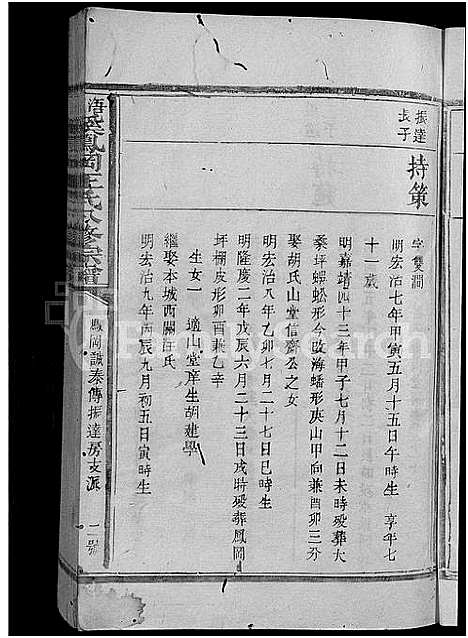 振達
長子
持策
字雙澗
明宏治七年甲寅五月十五日午時生 享年七
十一歲
明嘉靖四十三年甲子七月十二日未時歿葬大
桑坪蜈蚣形今改海蟠形庚山甲向兼酉卯三分
娶胡氏山堂信齋公之女
明宏治八年乙卯七月二十七日巳時生
明隆慶二年戊辰六月二十三日戌時歿葬鳳岡
坪棚皮形卯酉兼乙辛
生女一 適山堂庠生胡建學
繼娶本城西關汪氏
明宏治九年丙辰九月初五日寅時生
鳳岡王氏八修宗譜
鳳岡誠泰傳振達房支派
一號